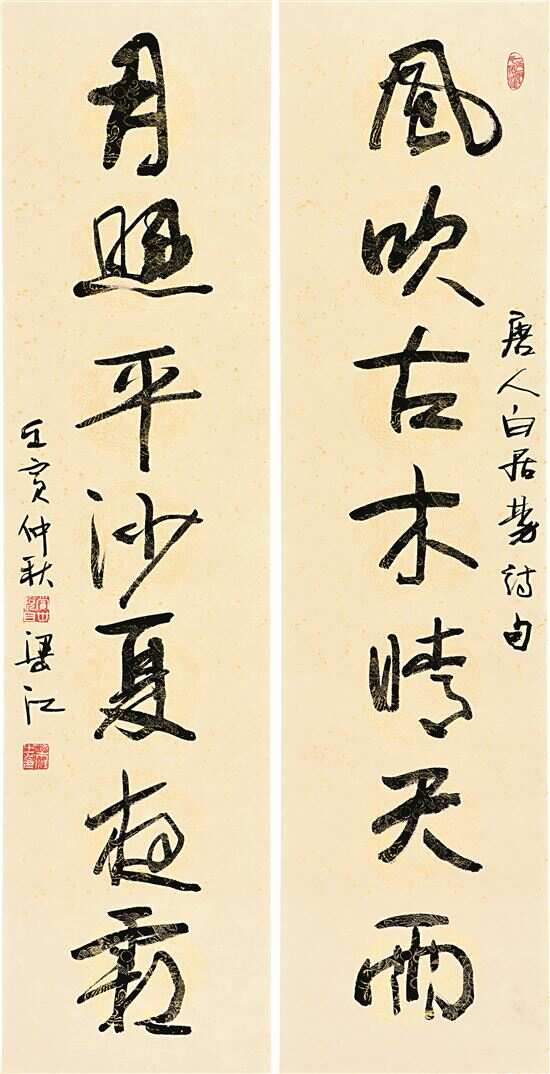 唐人白居易詩句
風吹古木晴天雨
月照平沙夏夜霜
壬寅仲秋 梁江